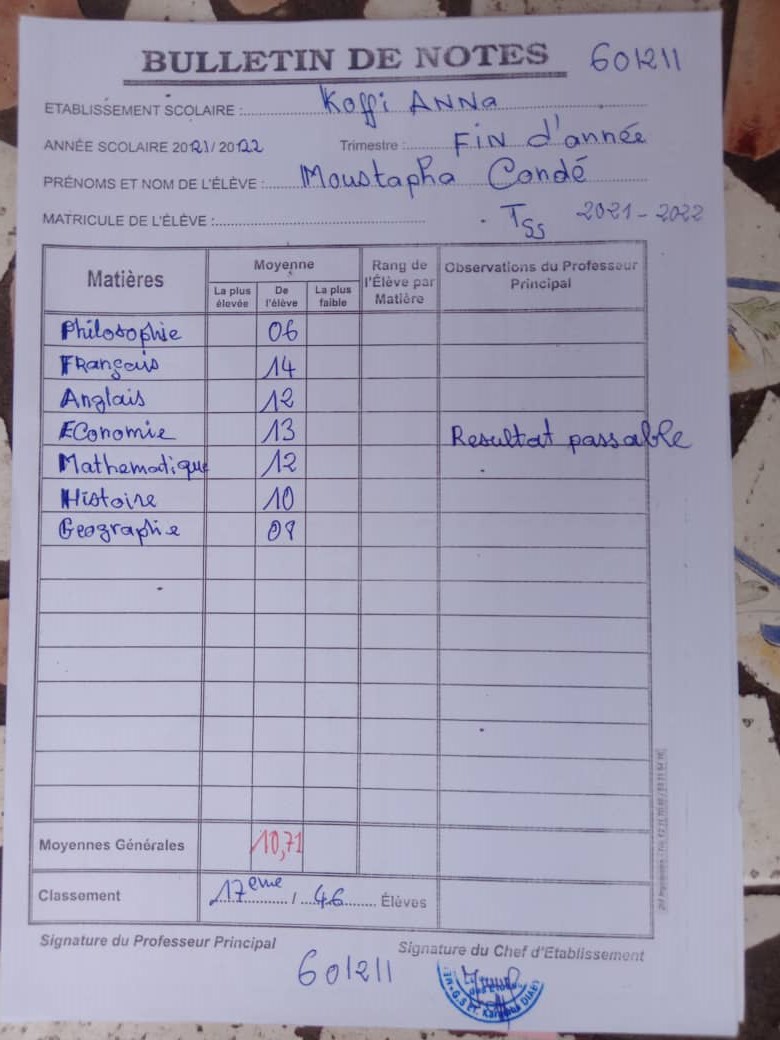 BULLETIN DE NOTES 601211
ETABLISSEMENT SCOLAIRE : Koffi ANNA
ANNÉE SCOLAIRE 2021/2022 Trimestre : FIN d'année
PRÉNOMS ET NOM DE L'ÉLÈVE : Moustapha Condé
MATRICULE DE L'ÉLÈVE : TSS 2021-2022
Matières Moyenne Rang de l'Élève par Matière Observations du Professeur Principal
La plus élevée De l'élève La plus faible
Philosophie 06
Français 14
Anglais 12
Economie 13 Resultat passable
Mathematique 12
Histoire 10
Geographie 08
Moyennes Générales 10,71
Classement 17eme / 46 Élèves
Signature du Professeur Principal Signature du Chef d'Etablissement
601211